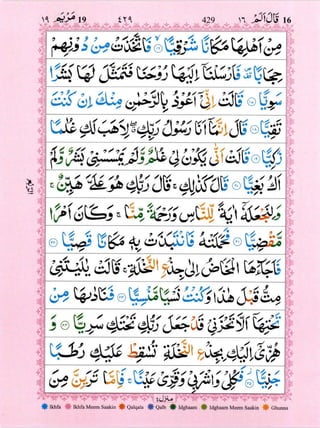 ١٩ مَرْيَم 19 ٤٢٩ 429 ١٦ قَالَ اَلَمْ 16
مِنْ اَهْلِهَا مَكَانًا شَرْقِيًّا ۙ١٦ فَاتَّخَذَتْ مِنْ دُوْنِهِمْ
حِجَابًا ۪ۛ فَاَرْسَلْنَاۤ اِلَيْهَا رُوْحَنَا فَتَمَثَّلَ لَهَا بَشَرًا
سَوِيًّا ١٧ قَالَتْ اِنِّيْۤ اَعُوْذُ بِالرَّحْمٰنِ مِنْكَ اِنْ كُنْتَ
تَقِيًّا ١٨ قَالَ اِنَّمَاۤ اَنَا رَسُوْلُ رَبِّكِ ۖۗ لِاَهَبَ لَكِ غُلٰمًا
زَكِيًّا ١٩ قَالَتْ اَنّٰى يَكُوْنُ لِيْ غُلٰمٌ وَّلَمْ يَمْسَسْنِيْ بَشَرٌ وَّلَمْ
اَكُ بَغِيًّا ٢٠ قَالَ كَذٰلِكِ ۚ قَالَ رَبُّكِ هُوَ عَلَيَّ هَيِّنٌ ۚ
وَلِنَجْعَلَهٗۤ اٰيَةً لِّلنَّاسِ وَرَحْمَةً مِّنَّا ۚ وَكَانَ اَمْرًا
مَّقْضِيًّا ٢١ فَحَمَلَتْهُ فَانْتَبَذَتْ بِهٖ مَكَانًا قَصِيًّا ٢٢
فَاَجَآءَهَا الْمَخَاضُ اِلٰى جِذْعِ النَّخْلَةِ ۚ قَالَتْ يٰلَيْتَنِيْ
مِتُّ قَبْلَ هٰذَا وَكُنْتُ نَسْيًا مَّنْسِيًّا ٢٣ فَنَادٰىهَا مِنْ
تَحْتِهَاۤ اَلَّا تَحْزَنِيْ قَدْ جَعَلَ رَبُّكِ تَحْتَكِ سَرِيًّا ٢٤ وَ
هُزِّيْۤ اِلَيْكِ بِجِذْعِ النَّخْلَةِ تُسٰقِطْ عَلَيْكِ رُطَبًا
جَنِيًّا ۫٢٥ فَكُلِيْ وَاشْرَبِيْ وَقَرِّيْ عَيْنًا ۚ فَاِمَّا تَرَيِنَّ مِنَ
منزل ٤
Ikhfa Ikhfa Meem Saakin Qalqala Qalb Idghaam Idghaam Meem Saakin Ghunna